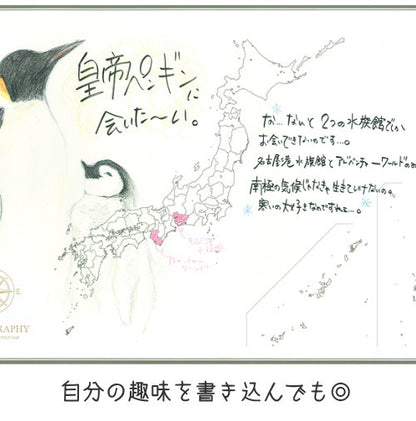 皇帝ペンギンに
会いた〜い。
な…なんと 2つの水族館でしか
お会いできないのです…。
名古屋港水族館とアドベンチャーワールドのみ
南極の気候じゃなきゃ生きていけないの。
寒いの大好きなのですねょ…。
E
RAPHY
自分の趣味を書き込んでも◎